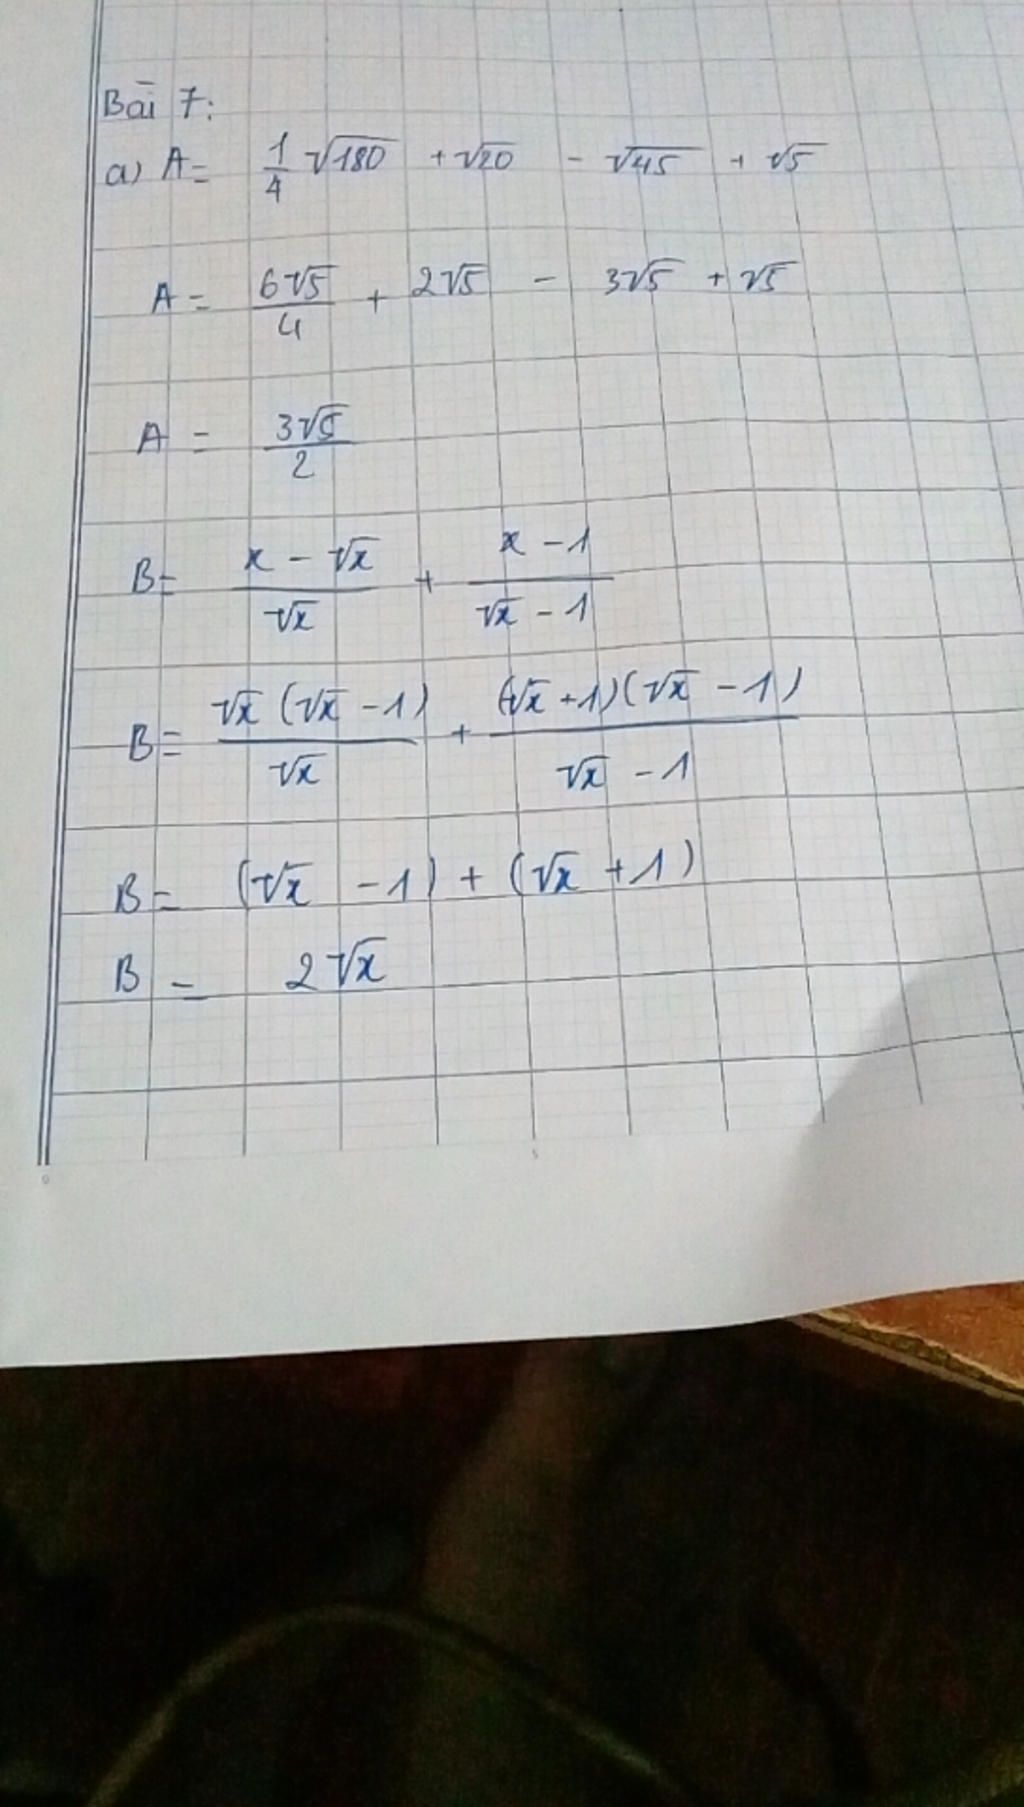 Bài 7:
a) A = 1/4 √180 + √20 - √45 + √5
A = 6√5/4 + 2√5 - 3√5 + √5
A = 3√5/2
B = (x - √x)/√x + (x - 1)/(√x - 1)
B = √x (√x - 1)/√x + (√x + 1)(√x - 1)/(√x - 1)
B = (√x - 1) + (√x + 1)
B = 2√x